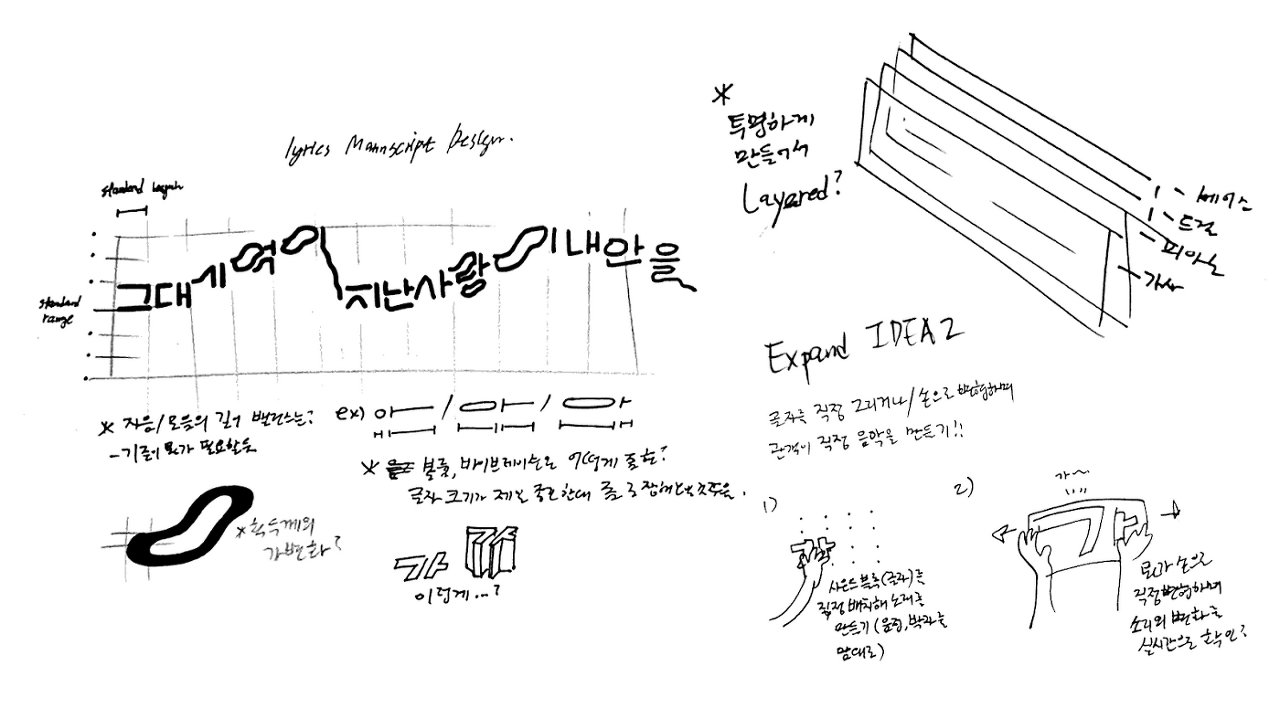 lyrics Manuscript Design.
standard length
standard range
그대 기억이 지난 사랑이 내 안을
* 자음/모음의 길이 밸런스는?
- 기준이 뭐가 필요할듯
ex) 아 / 아 / 아
* 볼륨, 바이브레이숀은 어떻게 표현?
글자 크기가 제일
* 획두께의
가변화?
가 가
이렇게...?
*
투명하게
만들어서
Layered?
베이스
드럼
피아노
가사
Expand IDEA 2
글자를 직접 그리거나/손으로 변형하며
관객이 직접 음악을 만들기!!
1)
사운드 블록(글자)를
직접 배치해 노래를
만들기 (음정, 박자를
맘대로)
2)
가~
뭔가 손으로
직접 변형하며
소리의 변화를
실시간으로 확인?